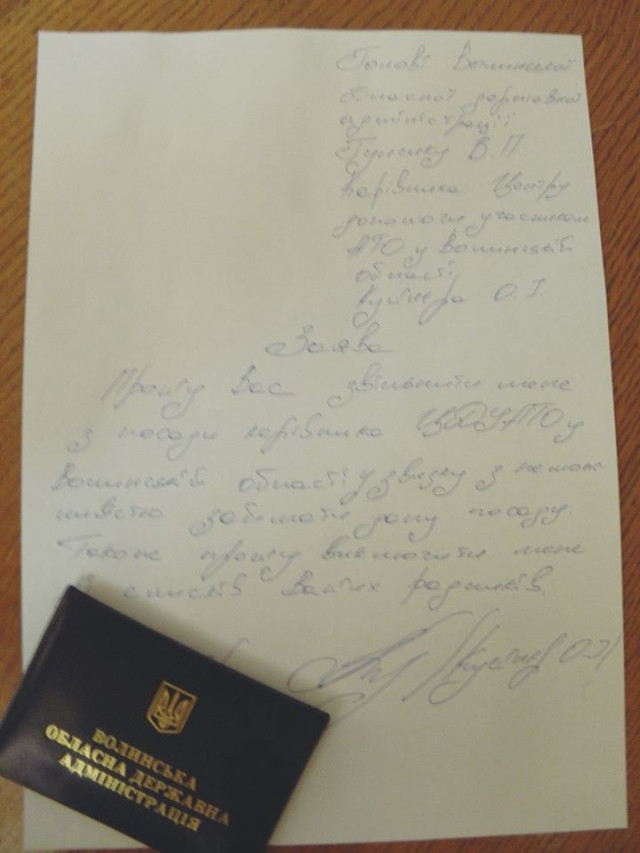 Голові Волинської
обласної державної
адміністрації
Гунчику В.П
керівника Центру
допомоги учасникам
АТО у Волинській
області
О.І
Заява
Прошу Вас звільнити мене
з посади керівника ЦДУАТО у
Волинській області у звязку з немож
ливістю займати дану посаду.
Також прошу виключити мене
зі списків Ваших радників.
О.І
ВОЛИНСЬКА
ОБЛАСНА ДЕРЖАВНА
АДМІНІСТРАЦІЯ